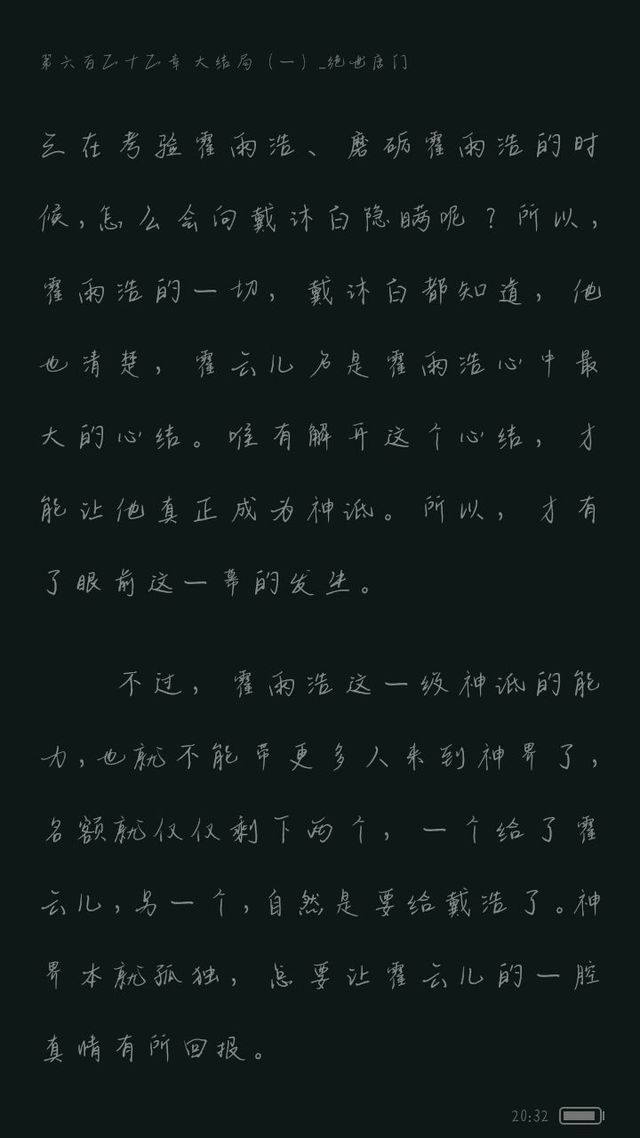 第六百五十五章 大结局（一）_绝世唐门
三在考验霍雨浩、磨砺霍雨浩的时
候，怎么会向戴沐白隐瞒呢？所以，
霍雨浩的一切，戴沐白都知道，他
也清楚，霍云儿才是霍雨浩心中最
大的心结。唯有解开这个心结，才
能让他真正成为神祇。所以，才有
了眼前这一幕的发生。
不过，霍雨浩这一级神祇的能
力，也就不能带更多人来到神界了，
名额就仅仅剩下两个，一个给了霍
云儿，另一个，自然是要给戴浩了。神
界本就孤独，总要让霍云儿的一腔
真情有所回报。
20:32